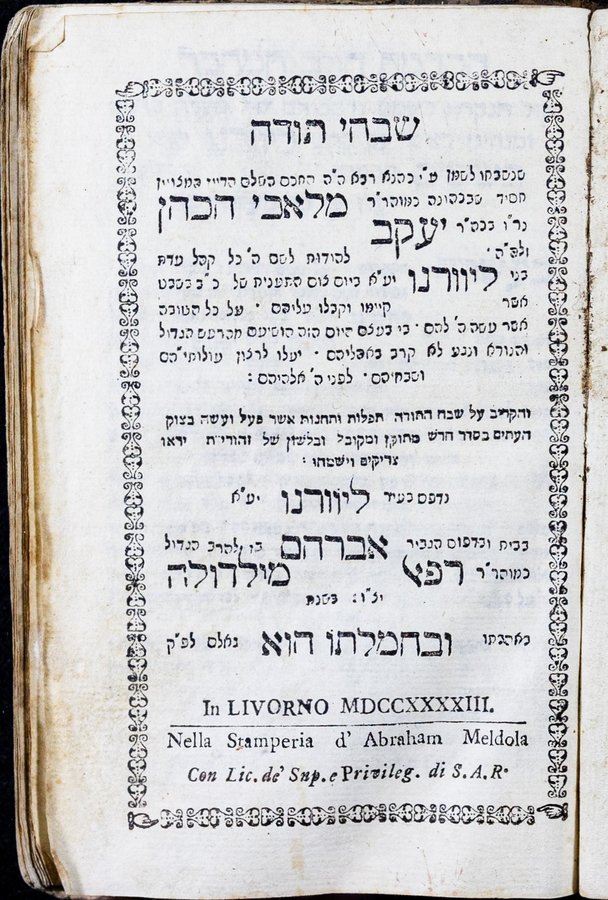 שבחי תודה
שנשבחו לשמן ע״י כהנא רבא ה״ה החכם השלם הדיין המצויין
חסיד שבכהונה כמוהר״ר מלאכי הכהן
נר״ו בכה״ר יעקב
זלה״ה׳ להודות לשם ה׳ כל קהל עדת
בני ליוורנו יע״א ביום צום התענית של כ״ב בשבט
אשר קיימו וקבלו עליהם ׳ על כל הטובה
אשר עשה ה׳ להם ׳ כי בעצם היום הזה הושיעם מהרעש הגדול
והנורא ונגע לא קרב באהליהם ׳ יעלו לרצון עולותי״הם
וזבחיהם ׳ לפני ה׳ אלהיהם :
והקריב על שבח התודה תפלות ותחנות אשר פעל ועשה בצוק
העתים בסדר חדש מתוקן ומקובל ובלשון של זהורית יראו
צדיקים וישמחו :
נדפס בעיר ליוורנו יע״א
בבית ובדפוס הגביר אברהם בן להרב הגדול
כמוהר״ר רפאל מילדולה
יצ״ו : בשנת
באהבתו ובחמלתו הוא גאלם לפ״ק
In LIVORNO MDCCXXXXIII.
Nella Stamperia d' Abraham Meldola
Con Lic. de' Sup. e Privileg. di S. A. R.